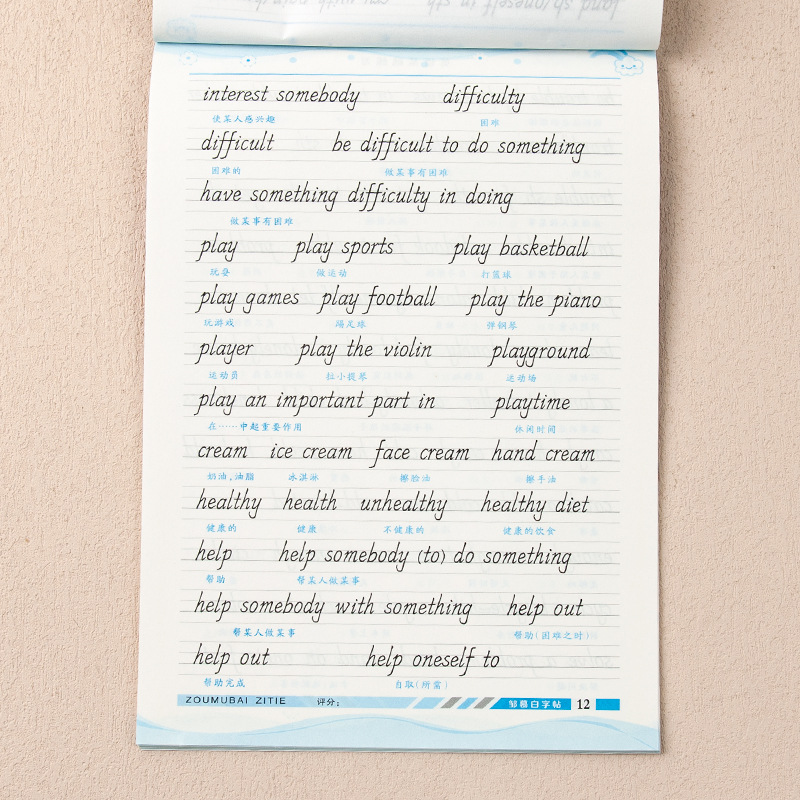 interest somebody difficulty
使某人感兴趣 困难
difficult be difficult to do something
困难的 做某事有困难
have something difficulty in doing
做某事有困难
play play sports play basketball
玩耍 做运动 打篮球
play games play football play the piano
玩游戏 踢足球 弹钢琴
player play the violin playground
运动员 拉小提琴 运动场
play an important part in playtime
在……中起重要作用 休闲时间
cream ice cream face cream hand cream
奶油,油脂 冰淇淋 擦脸油 擦手油
healthy health unhealthy healthy diet
健康的 健康 不健康的 健康的饮食
help help somebody (to) do something
帮助 帮某人做某事
help somebody with something help out
帮某人做某事 帮助(困难之时)
help out help oneself to
帮助完成 自取(所需)
ZOUMUBAI ZITIE 评分: 邹慕白字帖 12